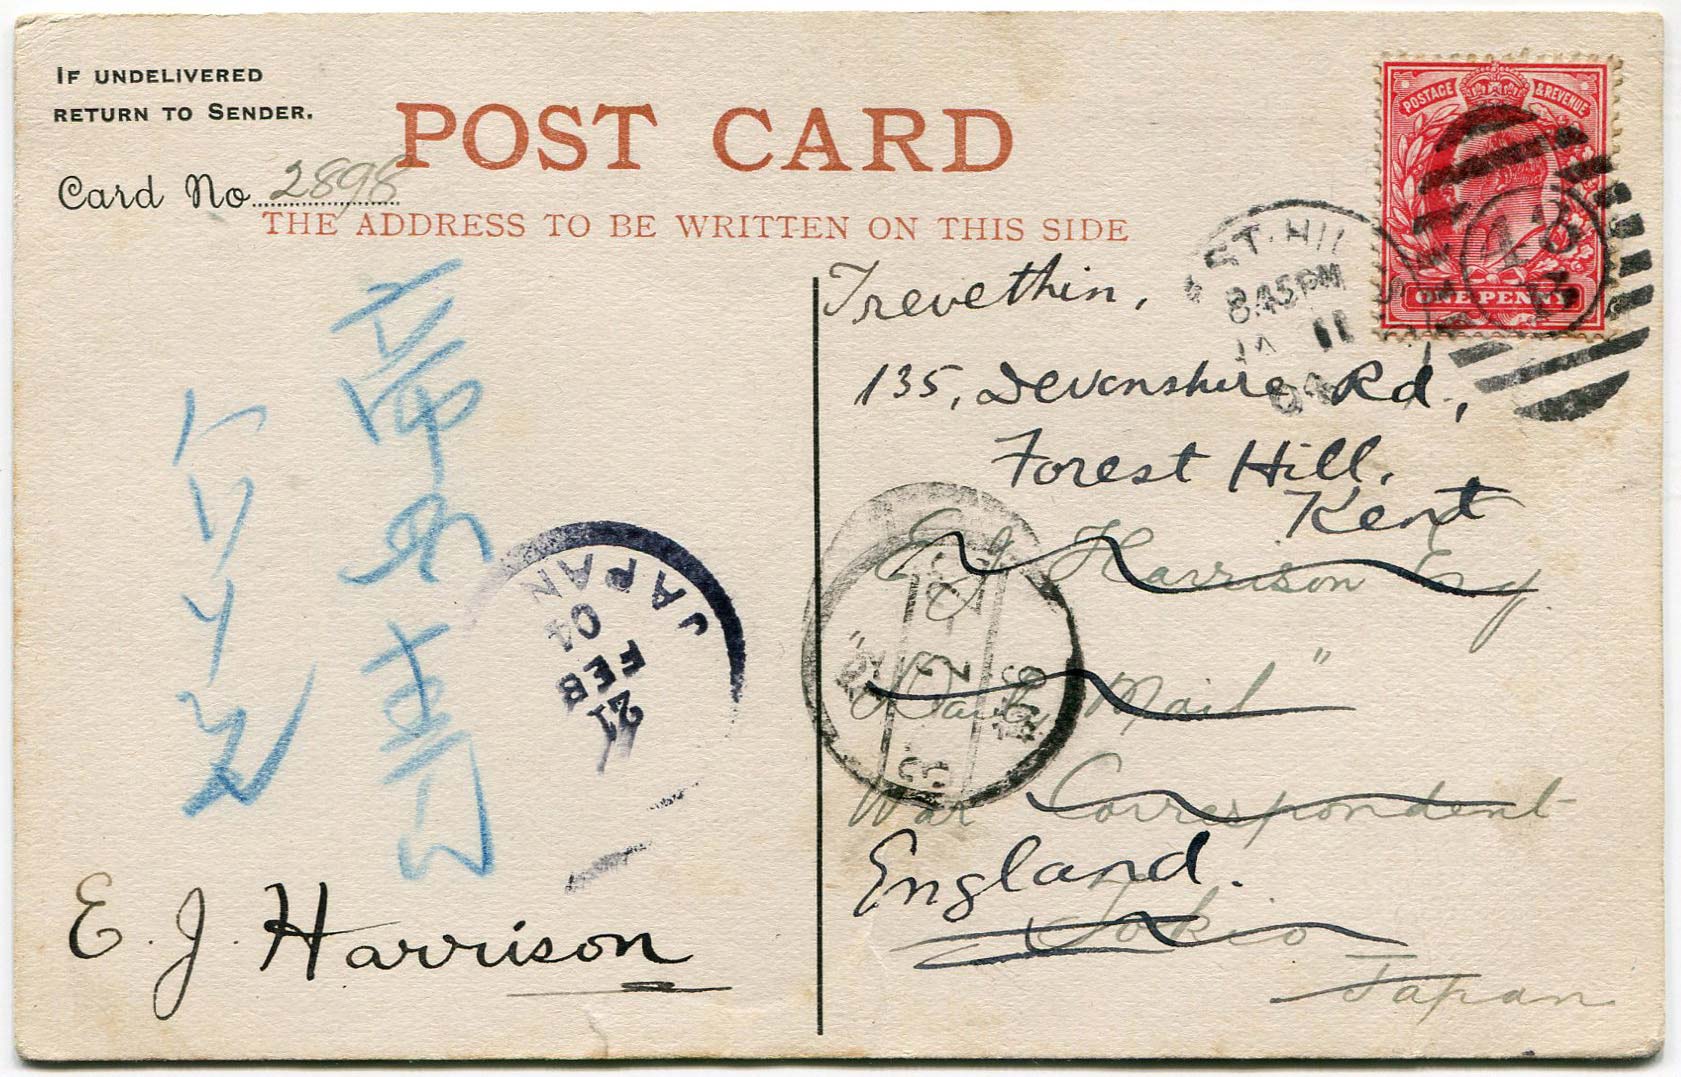 IF UNDELIVERED
RETURN TO SENDER.
POST CARD
Card No. 2898
THE ADDRESS TO BE WRITTEN ON THIS SIDE
POSTAGE & REVENUE
ONE PENNY
ST. HIL
8.45 PM
11
04
Trevethin,
135, Devonshire Rd,
Forest Hill,
Kent
E J Harrison Esq
"Daily Mail"
War Correspondent
England.
Tokio
Japan
JAPAN
04
FEB
21
E. J. Harrison